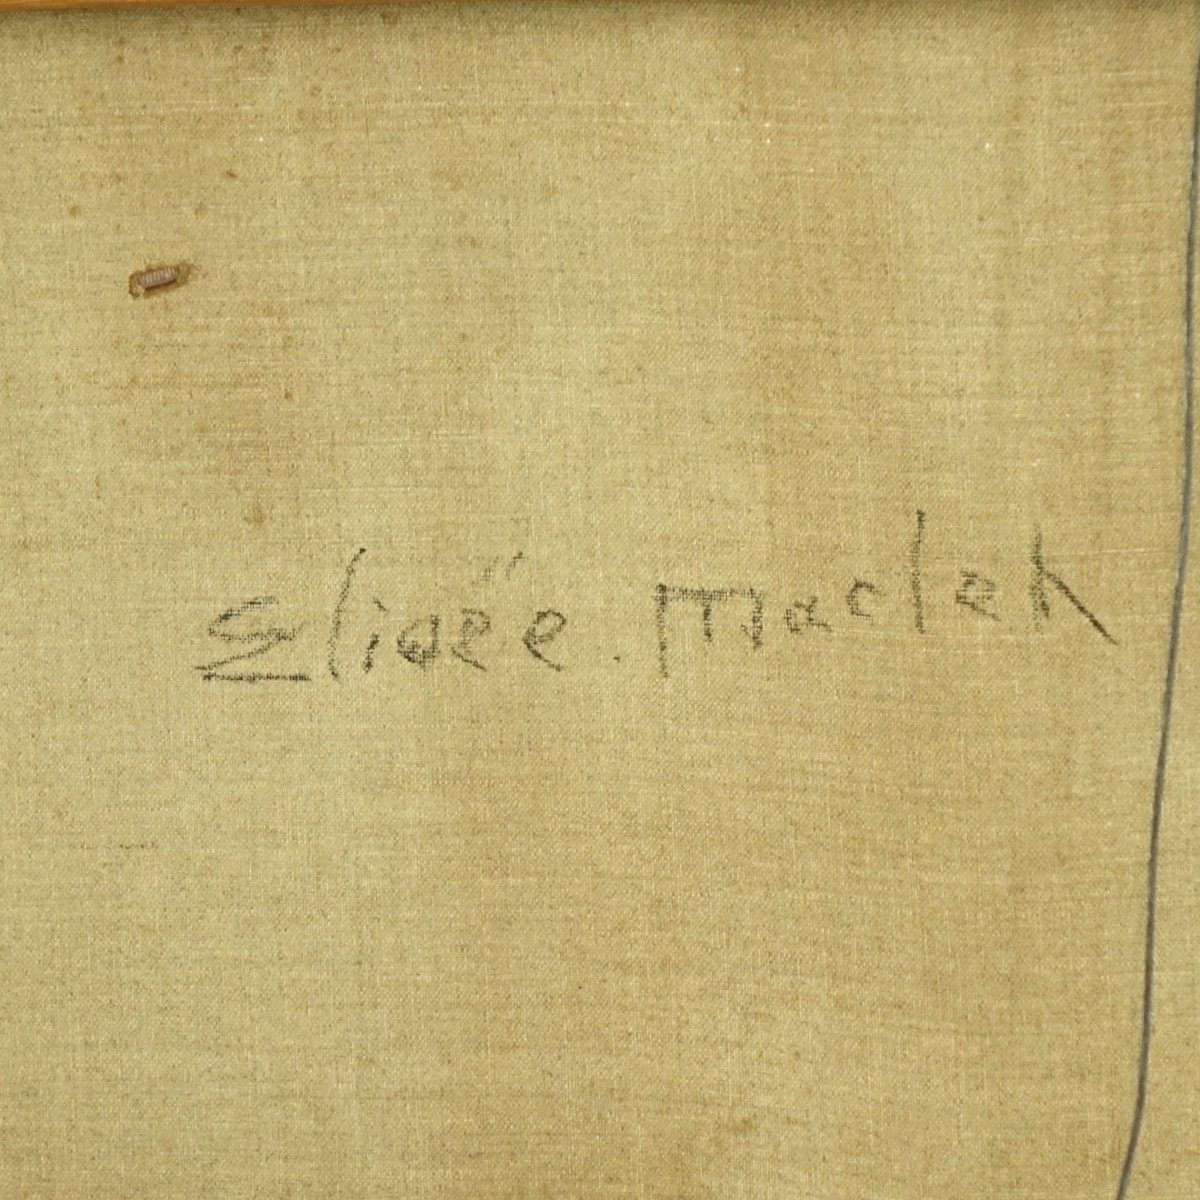 Elisëe. Maclet